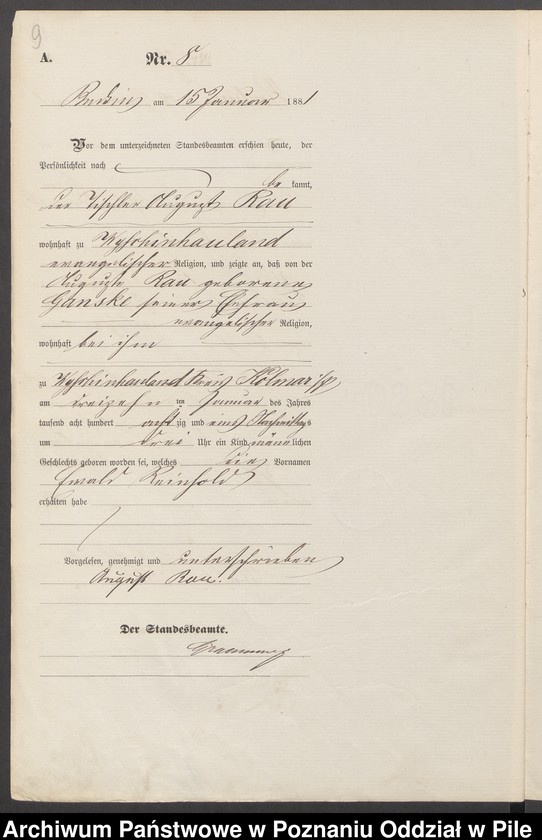 9
A.
Nr. 8
am 15 Januar 1881
Vor dem unterzeichneten Standesbeamten erschien heute, der
Persönlichkeit nach
be kannt,
der Tischler August Rau
wohnhaft zu
evangelischer Religion, und zeigte an, daß von der
Auguste Rau geborene
Ganske seiner Ehefrau
evangelischer Religion,
wohnhaft bei ihm
zu Kreis Kolmar i/p
am dreizehn ten Januar des Jahres
tausend acht hundert acht zig und eins Nachmittags
um drei Uhr ein Kind männlichen
Geschlechts geboren worden sei, welches die Vornamen
Ewald Reinhold
erhalten habe
Vorgelesen, genehmigt und unterschrieben
August Rau.
Der Standesbeamte.
Archiwum Państwowe w Poznaniu Oddział w Pile